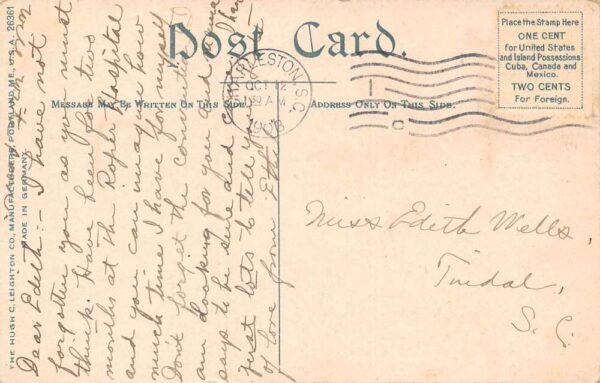 Post Card.
Place the Stamp Here
ONE CENT
for United States
and Island Possessions
Cuba, Canada and
Mexico.
TWO CENTS
For Foreign.
MESSAGE MAY BE WRITTEN ON THIS SIDE
ADDRESS ONLY ON THIS SIDE.
CHARLESTON, S.C.
OCT
30 A M
THE HUGH C. LEIGHTON CO., MANUFACTURERS, PORTLAND, ME., U.S.A.
MADE IN GERMANY.
26361
Dear Edeth:- I have not
forgotten you as you must
think. Have been for two
months at the Roper Hospital
and you can imagine how
much time I have for myself
Don't forget the
am looking for you
says to be sure and come
Just lots to tell you
of love from Eth
Miss Edeth Wells,
Tindal,
S. C.